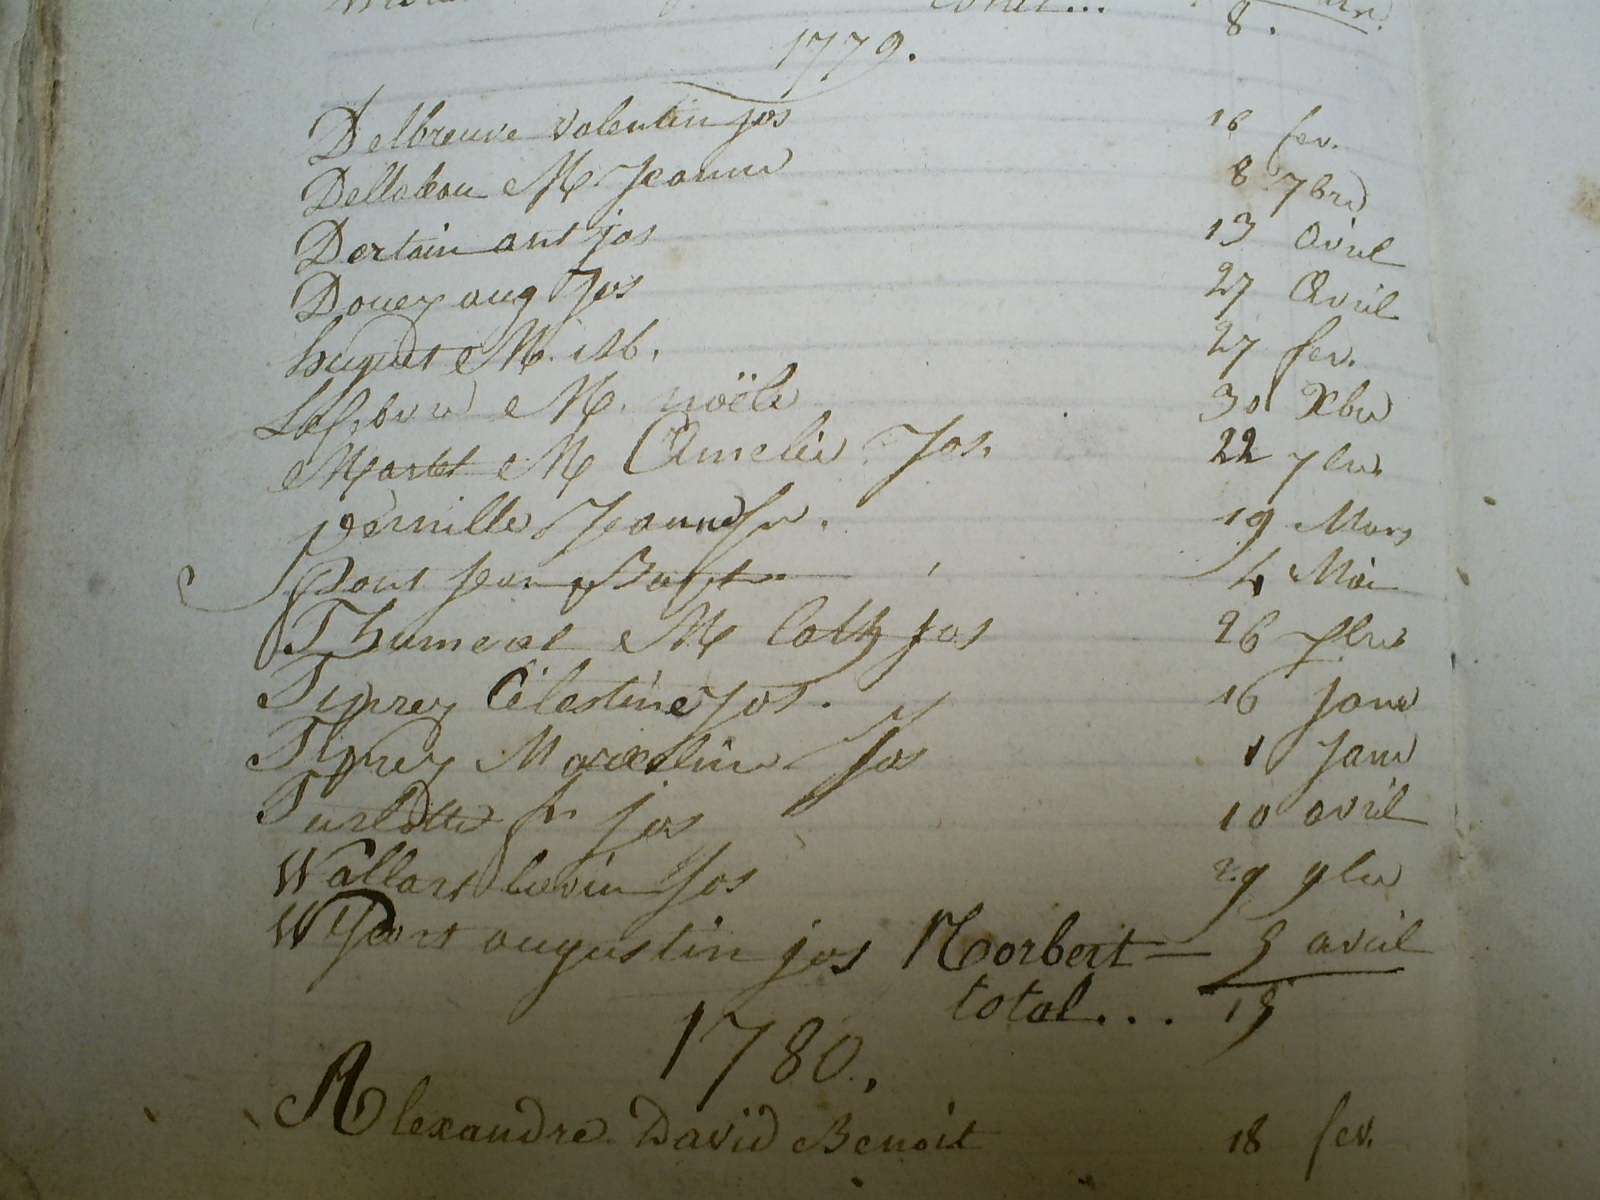 8.
1779.
Delbreuve Valentin jos 16 fev.
M Jeanne 8 7bre
Dertain ant jos 13 Avril
Douez aug Jos 27 Avril
huguet M. 27 fev.
Lefebvre M. noële 30 Xbre
Martet M Amelie Jos. 22 7bre
Jeanne 19 Mars
Pont Jean Bapt 4 Mai
Thumerel M Cath jos 26
Tiprez Célestine Jos. 16 Janv
Tiprez Marcelin Jos 1 Janv
Turlotte fr jos 10 avril
Wallart Livin Jos 29 9bre
augustin jos Norbert — 5 avril
total... 15
1780.
Alexandre David Benoit 18 fev.